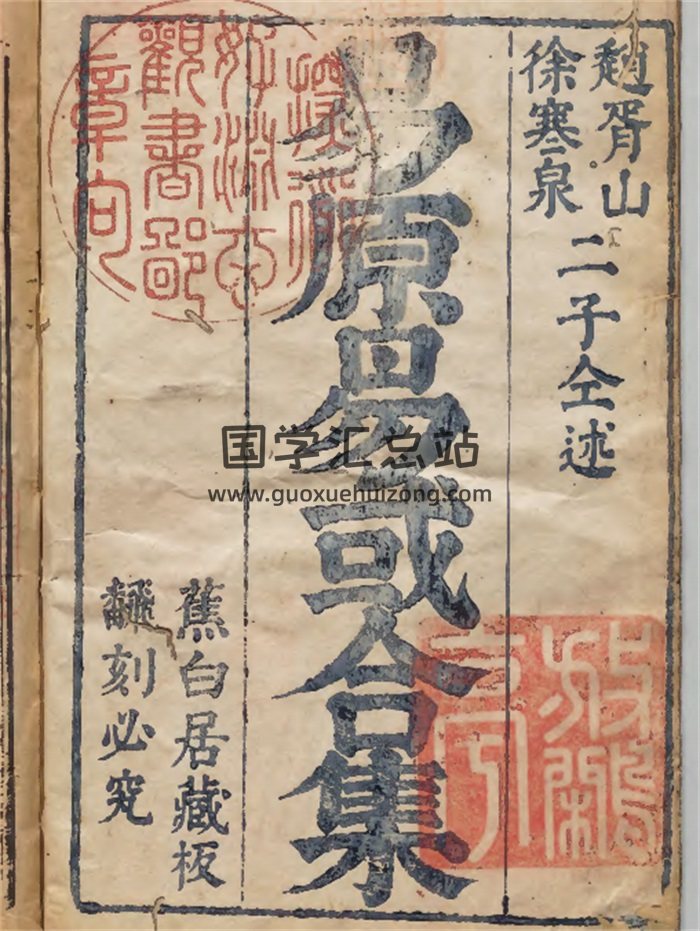 趙胥山
徐寒泉
二子仝述
易原易或合集
蕉白居藏板
飜刻必究
觀書鄙
章句
国学汇总站
www.guoxuehuizong.com